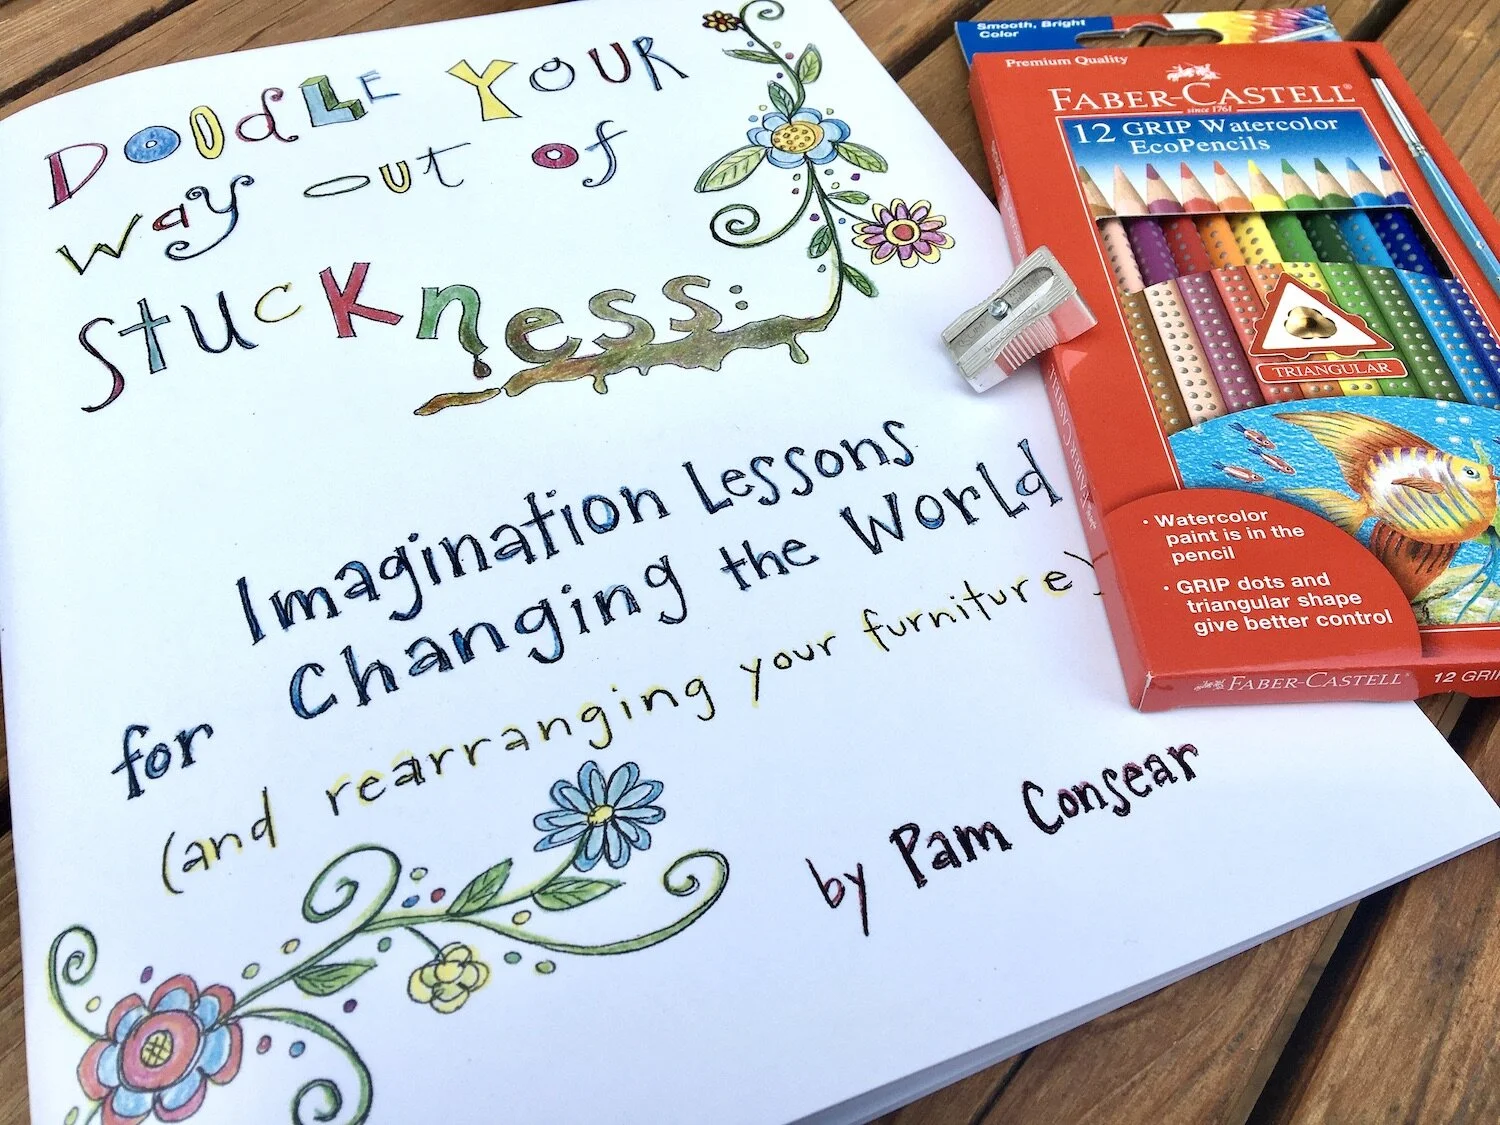 DOODLE YOUR
way out of
Stuckness:
Imagination Lessons
for Changing the World
(and rearranging your furniture)
by Pam Consear
Smooth, Bright
Color
Premium Quality
FABER-CASTELL
since 1761
12 GRIP Watercolor
EcoPencils
TRIANGULAR
• Watercolor
paint is in the
pencil
• GRIP dots and
triangular shape
give better control
FABER-CASTELL
12 GRIP
FABER-CASTELL